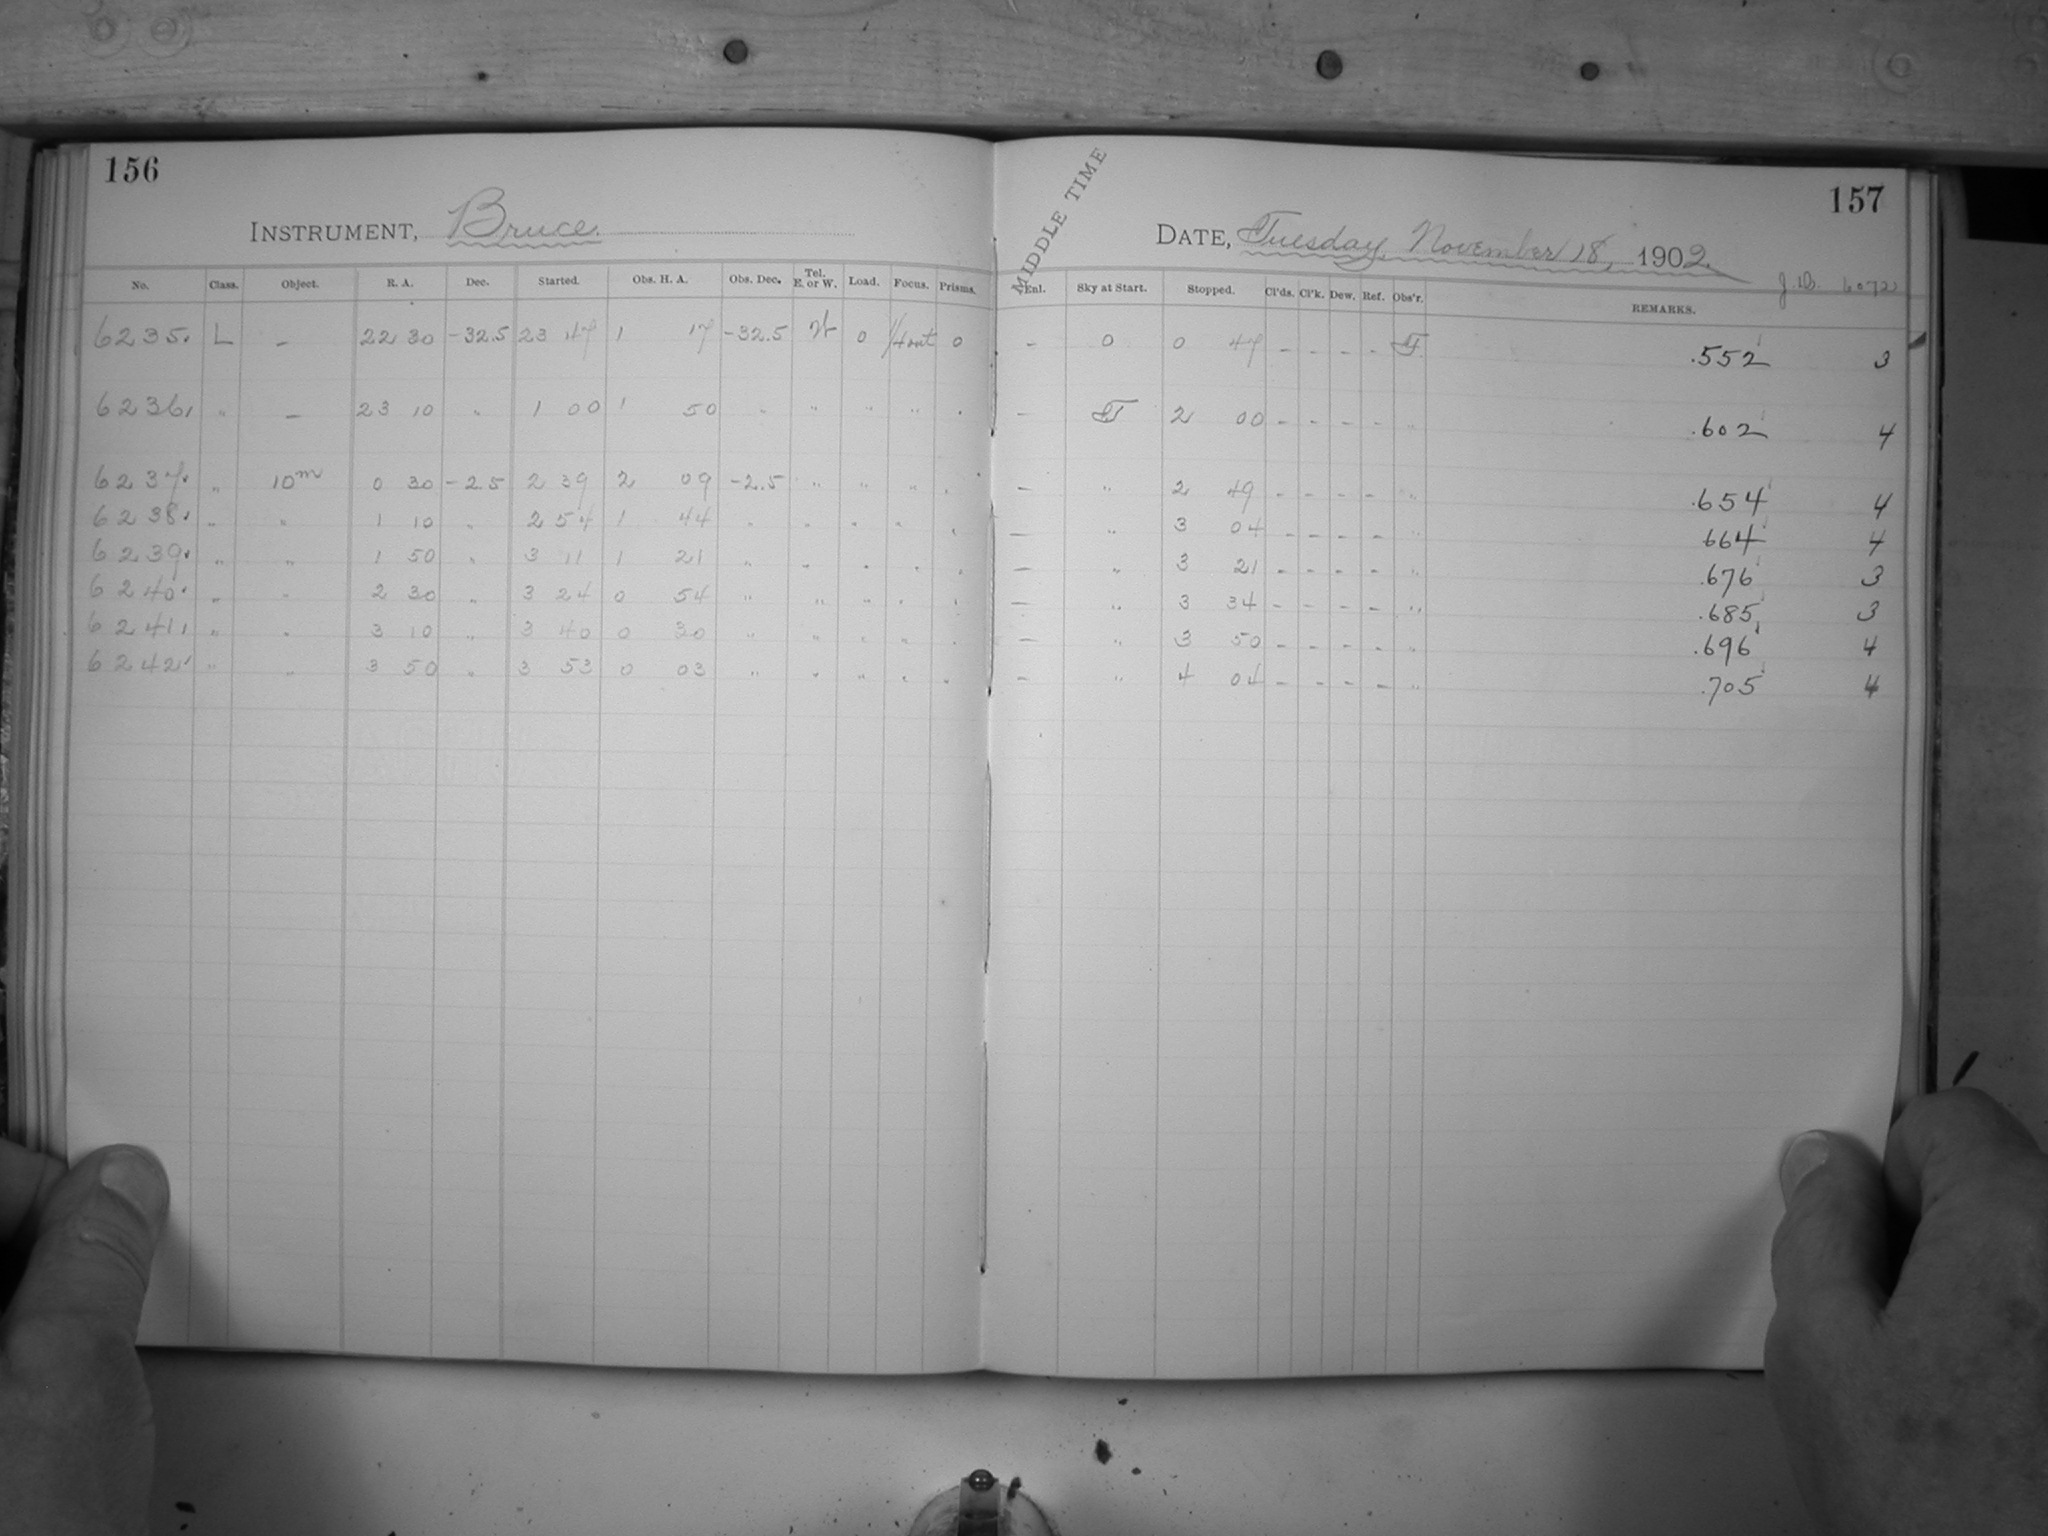 156
INSTRUMENT, Bruce.
No. Class. Object. R. A. Dec. Started. Obs. H. A. Obs. Dec. Tel. E. or W. Load. Focus. Prisms.
6235. L – 22 30 -32.5 23 47 1 17 -32.5 W 0 0
6236. " – 23 10 " 1 00 1 50 " " " " "
6237. " 10m 0 30 -2.5 2 39 2 09 -2.5 " " " "
6238. " " 1 10 " 2 54 1 44 " " " " "
6239. " " 1 50 " 3 11 1 21 " " " " "
6240. " " 2 30 " 3 24 0 54 " " " " "
6241. " " 3 10 " 3 40 0 30 " " " " "
6242. " " 3 50 " 3 53 0 03 " " " " "
157
MIDDLE TIME
DATE, Tuesday, November 18, 1902.
J.D. 6072
Enl. Sky at Start. Stopped. Cl'ds. Cl'k. Dew. Ref. Obs'r. REMARKS.
– 0 0 47 – – – – .552 3
– 2 00 – – – – " .602 4
– " 2 49 – – – – " .654 4
– " 3 04 – – – – " 664 4
– " 3 21 – – – – " .676 3
– " 3 34 – – – – " .685 3
– " 3 50 – – – – " .696 4
– " 4 04 – – – – " .705 4